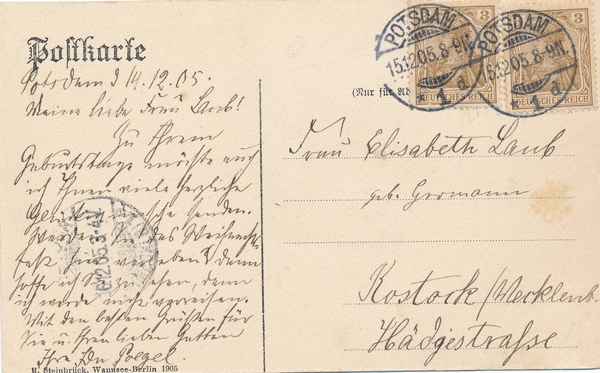 Postkarte
Potsdam d 14.12.05.
Meine liebe Frau Laub!
Zu Ihrem
Geburtstage möchte auch
ich Ihnen viele herzliche
senden.
Werden Sie das Weihnachts-
fest hier verleben? denn
hoffe ich Sie zu sehen, denn
ich werde nicht verreisen.
Mit den besten Grüßen für
Sie u. Ihren lieben Gatten
Ihre
R. Steinbrück, Wannsee-Berlin 1905
POTSDAM
15.12.05.8-9N.
* 1 d
POTSDAM
15.12.05.8-9N.
* 1 d
3
3
DEUTSCHES REICH
DEUTSCHES REICH
(Nur für Ad
Frau Elisabeth Laub
geb. Germann
Rostock /Mecklenb.
Hädgestraße
12.05.3-4N